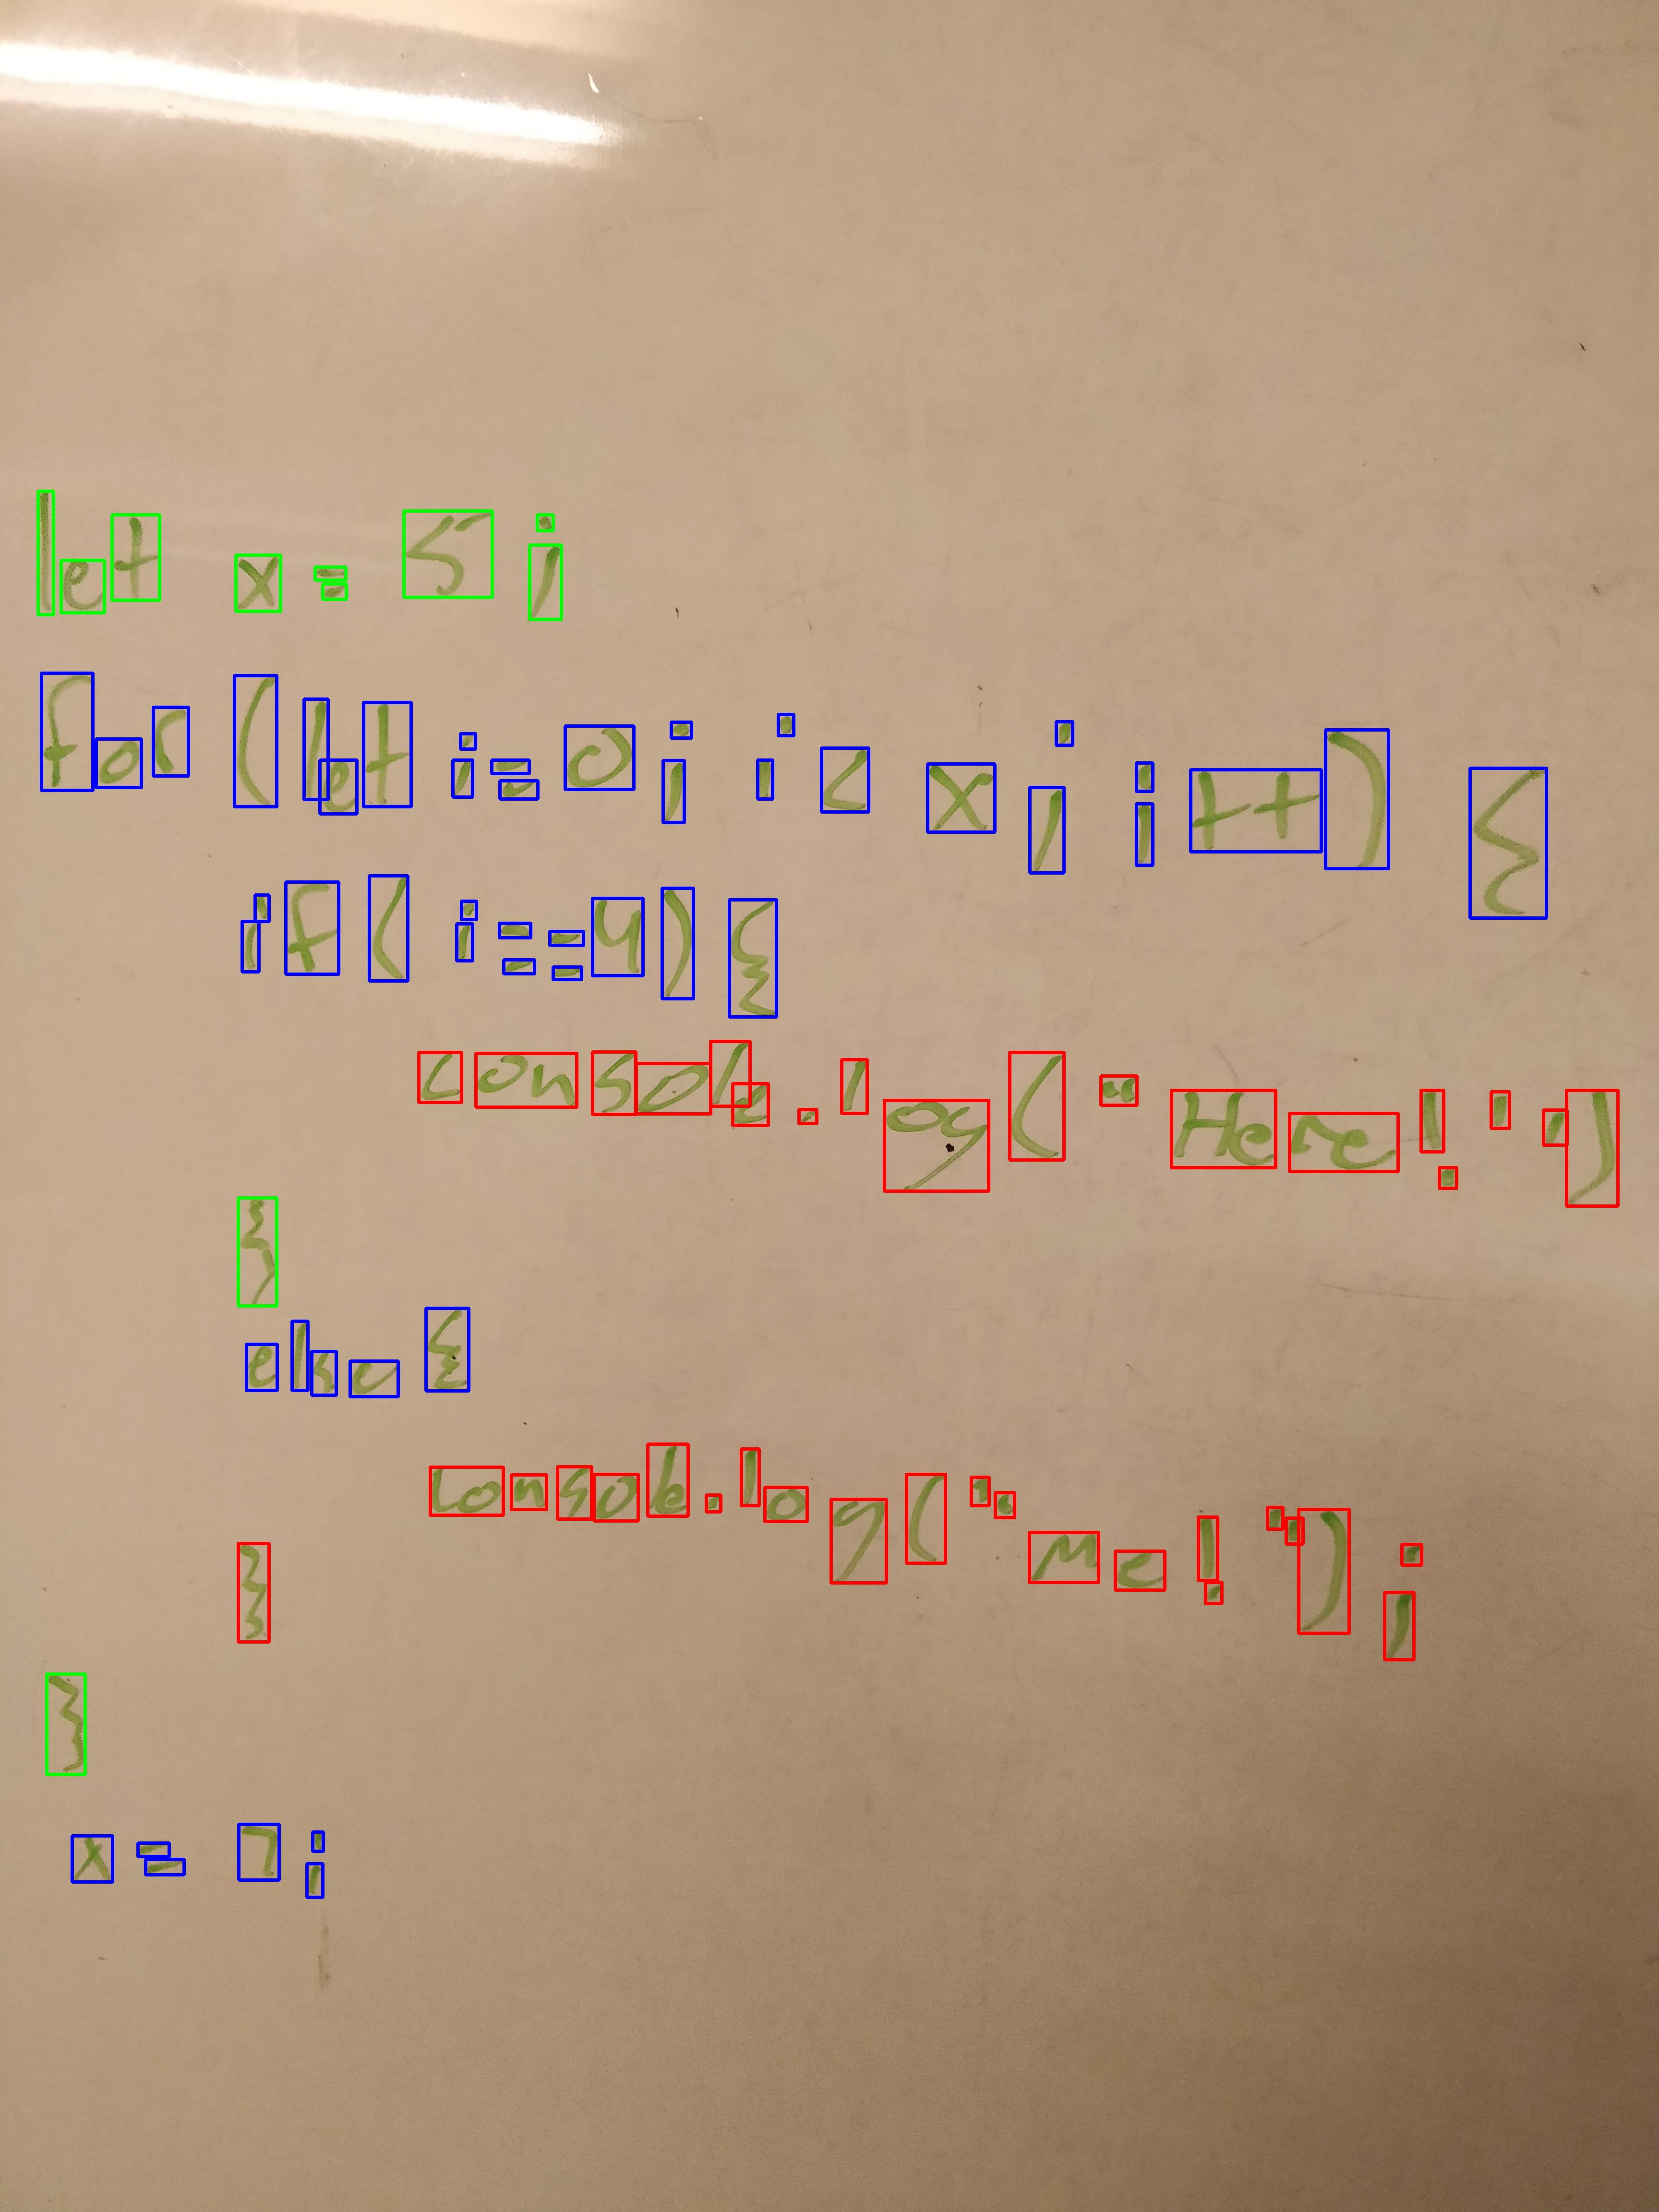 let x = 5;
for (let i=0; i < x; i++) {
if( i==4) {
console.log( "Here!")
}
else {
console.log("me!");
}
}
x = 7;